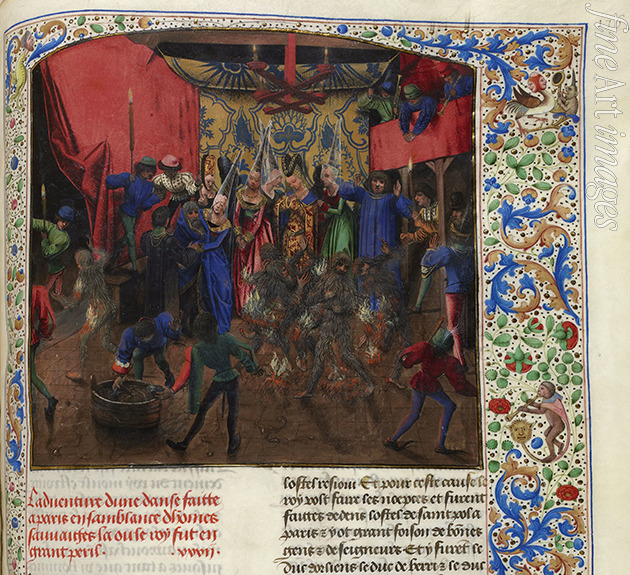 L'adventure dune danse faitte
a paris en samblance dhomes
sauvaiges la ou le roy fut en
grant peril. xxxij.
lostel resioui Et pour ceste cause le
roy volt faire les noepces et furent
faittes dedens lostel de saint pol a
paris & y ot grant foison de bones
gens & de seigneurs Et y furēt le
duc dorliens le duc de berri & le duc
fine Art images